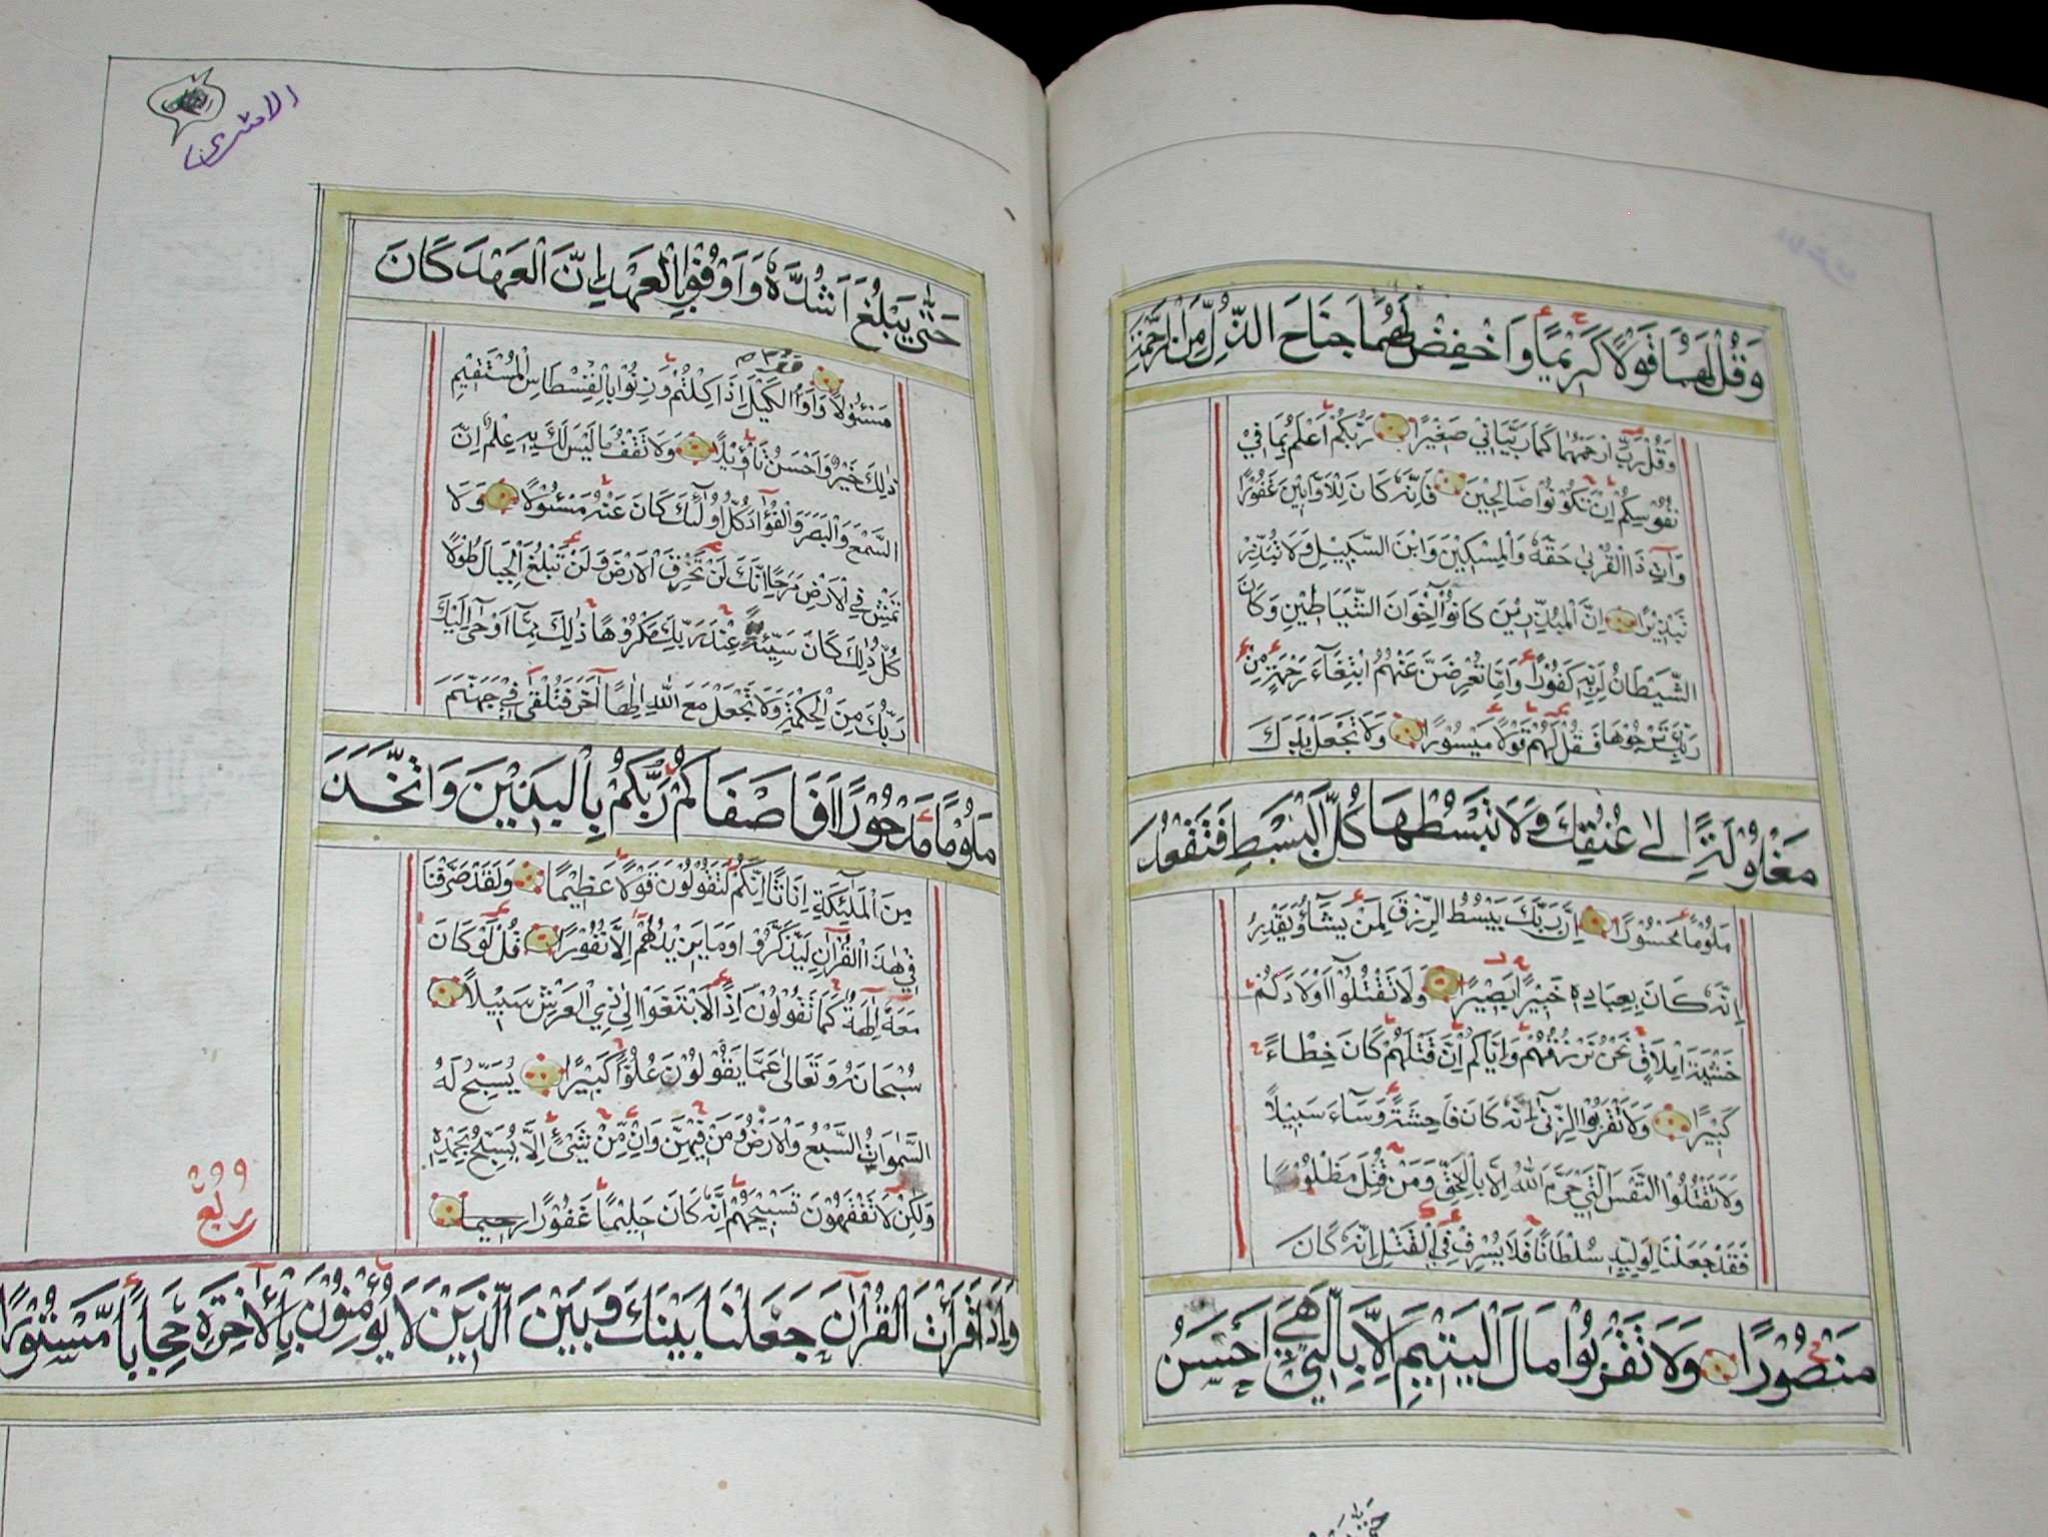 وَقُلْ لَهُمَا قَوْلًا كَرِيمًا وَاخْفِضْ لَهُمَا جَنَاحَ الذُّلِّ مِنَ الرَّحْمَةِ
وَقُلْ رَبِّ ارْحَمْهُمَا كَمَا رَبَّيَانِي صَغِيرًا رَبُّكُمْ أَعْلَمُ بِمَا فِي
نُفُوسِكُمْ اِنْ تَكُوْنُوْا صَالِحِيْنَ فَاِنَّهُ كَانَ لِلْاَوَّابِيْنَ غَفُوْرًا
وَآتِ ذَا الْقُرْبٰى حَقَّهُ وَالْمِسْكِيْنَ وَابْنَ السَّبِيْلِ وَلَا تُبَذِّرْ
تَبْذِيْرًا اِنَّ الْمُبَذِّرِيْنَ كَانُوْا اِخْوَانَ الشَّيَاطِيْنِ وَكَانَ
الشَّيْطَانُ لِرَبِّهِ كَفُوْرًا وَاِمَّا تُعْرِضَنَّ عَنْهُمُ ابْتِغَآءَ رَحْمَةٍ مِنْ
رَبِّكَ تَرْجُوْهَا فَقُلْ لَهُمْ قَوْلًا مَيْسُوْرًا وَلَا تَجْعَلْ يَدَكَ
مَغْلُوْلَةً اِلٰى عُنُقِكَ وَلَا تَبْسُطْهَا كُلَّ الْبَسْطِ فَتَقْعُدَ
مَلُوْمًا مَحْسُوْرًا اِنَّ رَبَّكَ يَبْسُطُ الرِّزْقَ لِمَنْ يَشَآءُ وَيَقْدِرُ
اِنَّهُ كَانَ بِعِبَادِهِ خَبِيْرًا بَصِيْرًا وَلَا تَقْتُلُوْا اَوْلَادَكُمْ
خَشْيَةَ اِمْلَاقٍ نَحْنُ نَرْزُقُهُمْ وَاِيَّاكُمْ اِنَّ قَتْلَهُمْ كَانَ خِطْاءً
كَبِيْرًا وَلَا تَقْرَبُوا الزِّنٰى اِنَّهُ كَانَ فَاحِشَةً وَسَآءَ سَبِيْلًا
وَلَا تَقْتُلُوا النَّفْسَ الَّتِيْ حَرَّمَ اللّٰهُ اِلَّا بِالْحَقِّ وَمَنْ قُتِلَ مَظْلُوْمًا
فَقَدْ جَعَلْنَا لِوَلِيِّهِ سُلْطَانًا فَلَا يُسْرِفْ فِي الْقَتْلِ اِنَّهُ كَانَ
مَنْصُوْرًا وَلَا تَقْرَبُوْا مَالَ الْيَتِيْمِ اِلَّا بِالَّتِيْ هِيَ اَحْسَنُ
حَتّٰى
حَتّٰى يَبْلُغَ اَشُدَّهُ وَاَوْفُوْا بِالْعَهْدِ اِنَّ الْعَهْدَ كَانَ
مَسْئُوْلًا وَاَوْفُوا الْكَيْلَ اِذَا كِلْتُمْ وَزِنُوْا بِالْقِسْطَاسِ الْمُسْتَقِيْمِ
ذٰلِكَ خَيْرٌ وَاَحْسَنُ تَأْوِيْلًا وَلَا تَقْفُ مَا لَيْسَ لَكَ بِهِ عِلْمٌ اِنَّ
السَّمْعَ وَالْبَصَرَ وَالْفُؤَادَ كُلُّ اُولٰٓئِكَ كَانَ عَنْهُ مَسْئُوْلًا وَلَا
تَمْشِ فِي الْاَرْضِ مَرَحًا اِنَّكَ لَنْ تَخْرِقَ الْاَرْضَ وَلَنْ تَبْلُغَ الْجِبَالَ طُوْلًا
كُلُّ ذٰلِكَ كَانَ سَيِّئَةً عِنْدَ رَبِّكَ مَكْرُوْهًا ذٰلِكَ مِمَّا اَوْحٰى اِلَيْكَ
رَبُّكَ مِنَ الْحِكْمَةِ وَلَا تَجْعَلْ مَعَ اللّٰهِ اِلٰهًا اٰخَرَ فَتُلْقٰى فِيْ جَهَنَّمَ
مَلُوْمًا مَدْحُوْرًا اَفَاَصْفَاكُمْ رَبُّكُمْ بِالْبَنِيْنَ وَاتَّخَذَ
مِنَ الْمَلٰٓئِكَةِ اِنَاثًا اِنَّكُمْ لَتَقُوْلُوْنَ قَوْلًا عَظِيْمًا وَلَقَدْ صَرَّفْنَا
فِيْ هٰذَا الْقُرْاٰنِ لِيَذَّكَّرُوْا وَمَا يَزِيْدُهُمْ اِلَّا نُفُوْرًا قُلْ لَوْ كَانَ
مَعَهُ اٰلِهَةٌ كَمَا تَقُوْلُوْنَ اِذًا لَابْتَغَوْا اِلٰى ذِي الْعَرْشِ سَبِيْلًا
سُبْحَانَهُ وَتَعَالٰى عَمَّا يَقُوْلُوْنَ عُلُوًّا كَبِيْرًا يُسَبِّحُ لَهُ
السَّمٰوَاتُ السَّبْعُ وَالْاَرْضُ وَمَنْ فِيْهِنَّ وَاِنْ مِّنْ شَيْءٍ اِلَّا يُسَبِّحُ بِحَمْدِهِ
وَلٰكِنْ لَا تَفْقَهُوْنَ تَسْبِيْحَهُمْ اِنَّهُ كَانَ حَلِيْمًا غَفُوْرًا رحيما
ربع
وَاِذَا قَرَأْتَ الْقُرْاٰنَ جَعَلْنَا بَيْنَكَ وَبَيْنَ الَّذِيْنَ لَا يُؤْمِنُوْنَ بِالْاٰخِرَةِ حِجَابًا مَّسْتُوْرًا